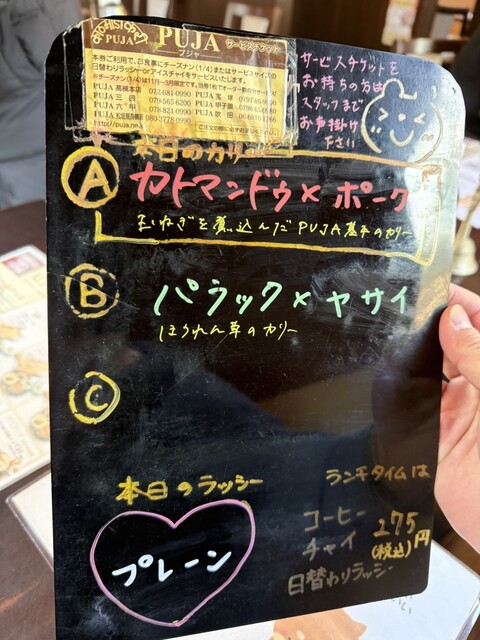 PUJA
PUJA サービスチケット
プジャー
本券ご利用で、日食事にチーズナン(1/4)またはサービスサイズの
日替わりラッシーorアイスチャイをサービスいたします。
PUJA 高槻本店 072-681-0990
PUJA 三田 079-565-6200
PUJA 六甲 078-821-0990
PUJA 宝塚
PUJA 甲子園
PUJA 吹田
サービスチケットを
お持ちの方は
スタッフまで
お声掛け
下さい
本日のカリー
A カトマンドゥ×ポーク
玉ねぎを煮込んだPUJA基本のカリー
B パラック×ヤサイ
ほうれん草のカリー
C
本日のラッシー
プレーン
ランチタイムは
コーヒー
チャイ
日替わりラッシー
275円
(税込)